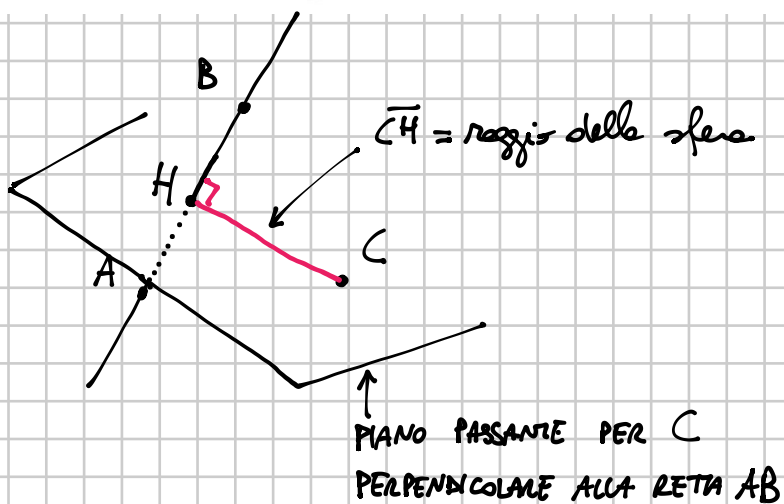 B
C̅H̅ = raggio della sfera
H
C
A
PIANO PASSANTE PER C
PERPENDICOLARE ALLA RETTA AB